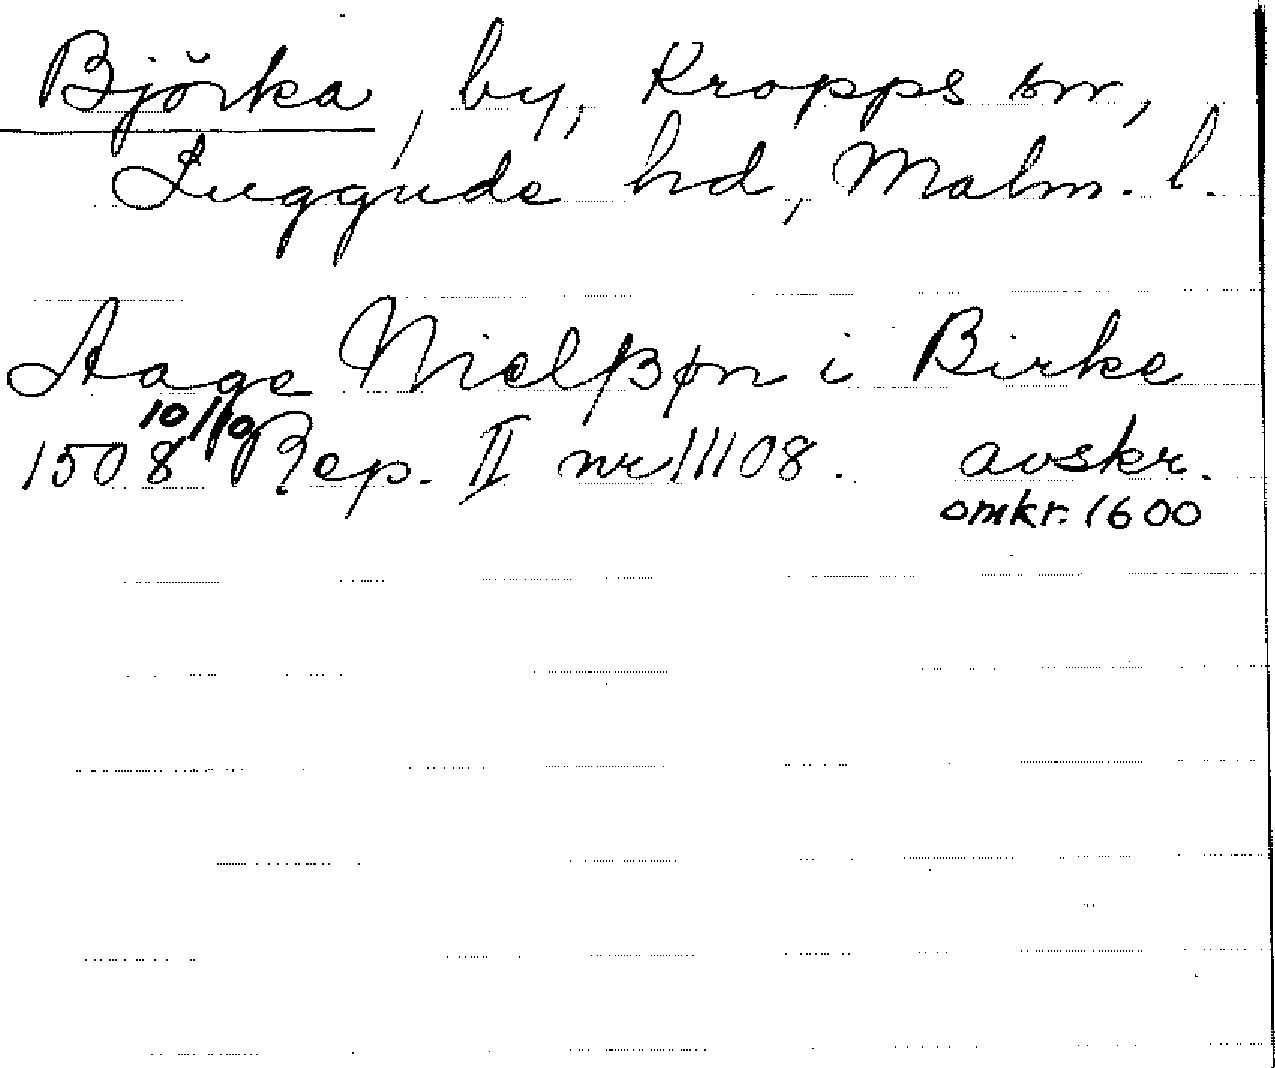 Björka, by, Kropps sn,
Luggude hd, Malm. l.
Aage Nielßøn i Birke
10/10
1508 Rep. II nr 11108. avskr.
omkr. 1600